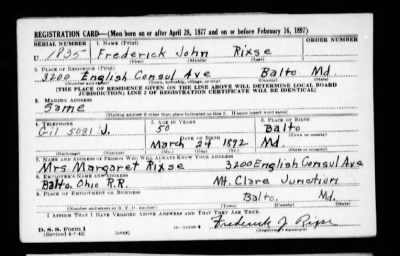 REGISTRATION CARD—(Men born on or after April 28, 1877 and on or before February 16, 1897)
SERIAL NUMBER 1. NAME (Print) ORDER NUMBER
U 1835 Frederick John Rixse
(First) (Middle) (Last)
2. PLACE OF RESIDENCE (Print)
3200 English Consul Ave Balto Md.
(Number and street) (Town, township, village, or city) (County) (State)
[THE PLACE OF RESIDENCE GIVEN ON THE LINE ABOVE WILL DETERMINE LOCAL BOARD
JURISDICTION; LINE 2 OF REGISTRATION CERTIFICATE WILL BE IDENTICAL]
3. MAILING ADDRESS
Same
[Mailing address if other than place indicated on line 2. If same insert word same]
4. TELEPHONE 5. AGE IN YEARS 6. PLACE OF BIRTH
Gil 5031 J. 50 Balto
DATE OF BIRTH (Town or county)
March 24 1892 Md.
(Exchange) (Number) (Mo.) (Day) (Yr.) (State or country)
7. NAME AND ADDRESS OF PERSON WHO WILL ALWAYS KNOW YOUR ADDRESS
Mrs. Margaret Rixse 3200 English Consul Ave
8. EMPLOYER'S NAME AND ADDRESS
Balto. Ohio R.R. Mt. Clare Junction
9. PLACE OF EMPLOYMENT OR BUSINESS
Balto. Md.
(Number and street or R. F. D. number) (Town) (County) (State)
I AFFIRM THAT I HAVE VERIFIED ABOVE ANSWERS AND THAT THEY ARE TRUE.
D. S. S. Form 1
Frederick J Rixse
(Registrant's signature)